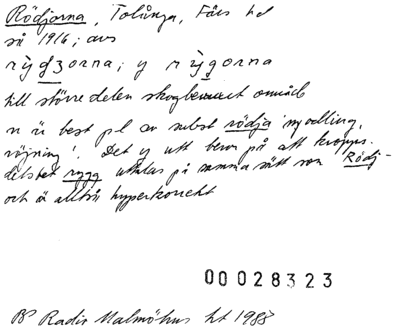 Rödjorna, Tolånga, Färs hd
så 1916; avs
rỳgʒorna; y rỳgorna
till större delen skogbevuxet område
n är best pl av subst rödja 'nyodling,
röjning'. Det y utt beror på att kropps-
delsbet rygg uttalas på samma sätt som Rödj-
och är alltså hyperkorrekt
00028323
BP Radis Malmöhus ht 1988